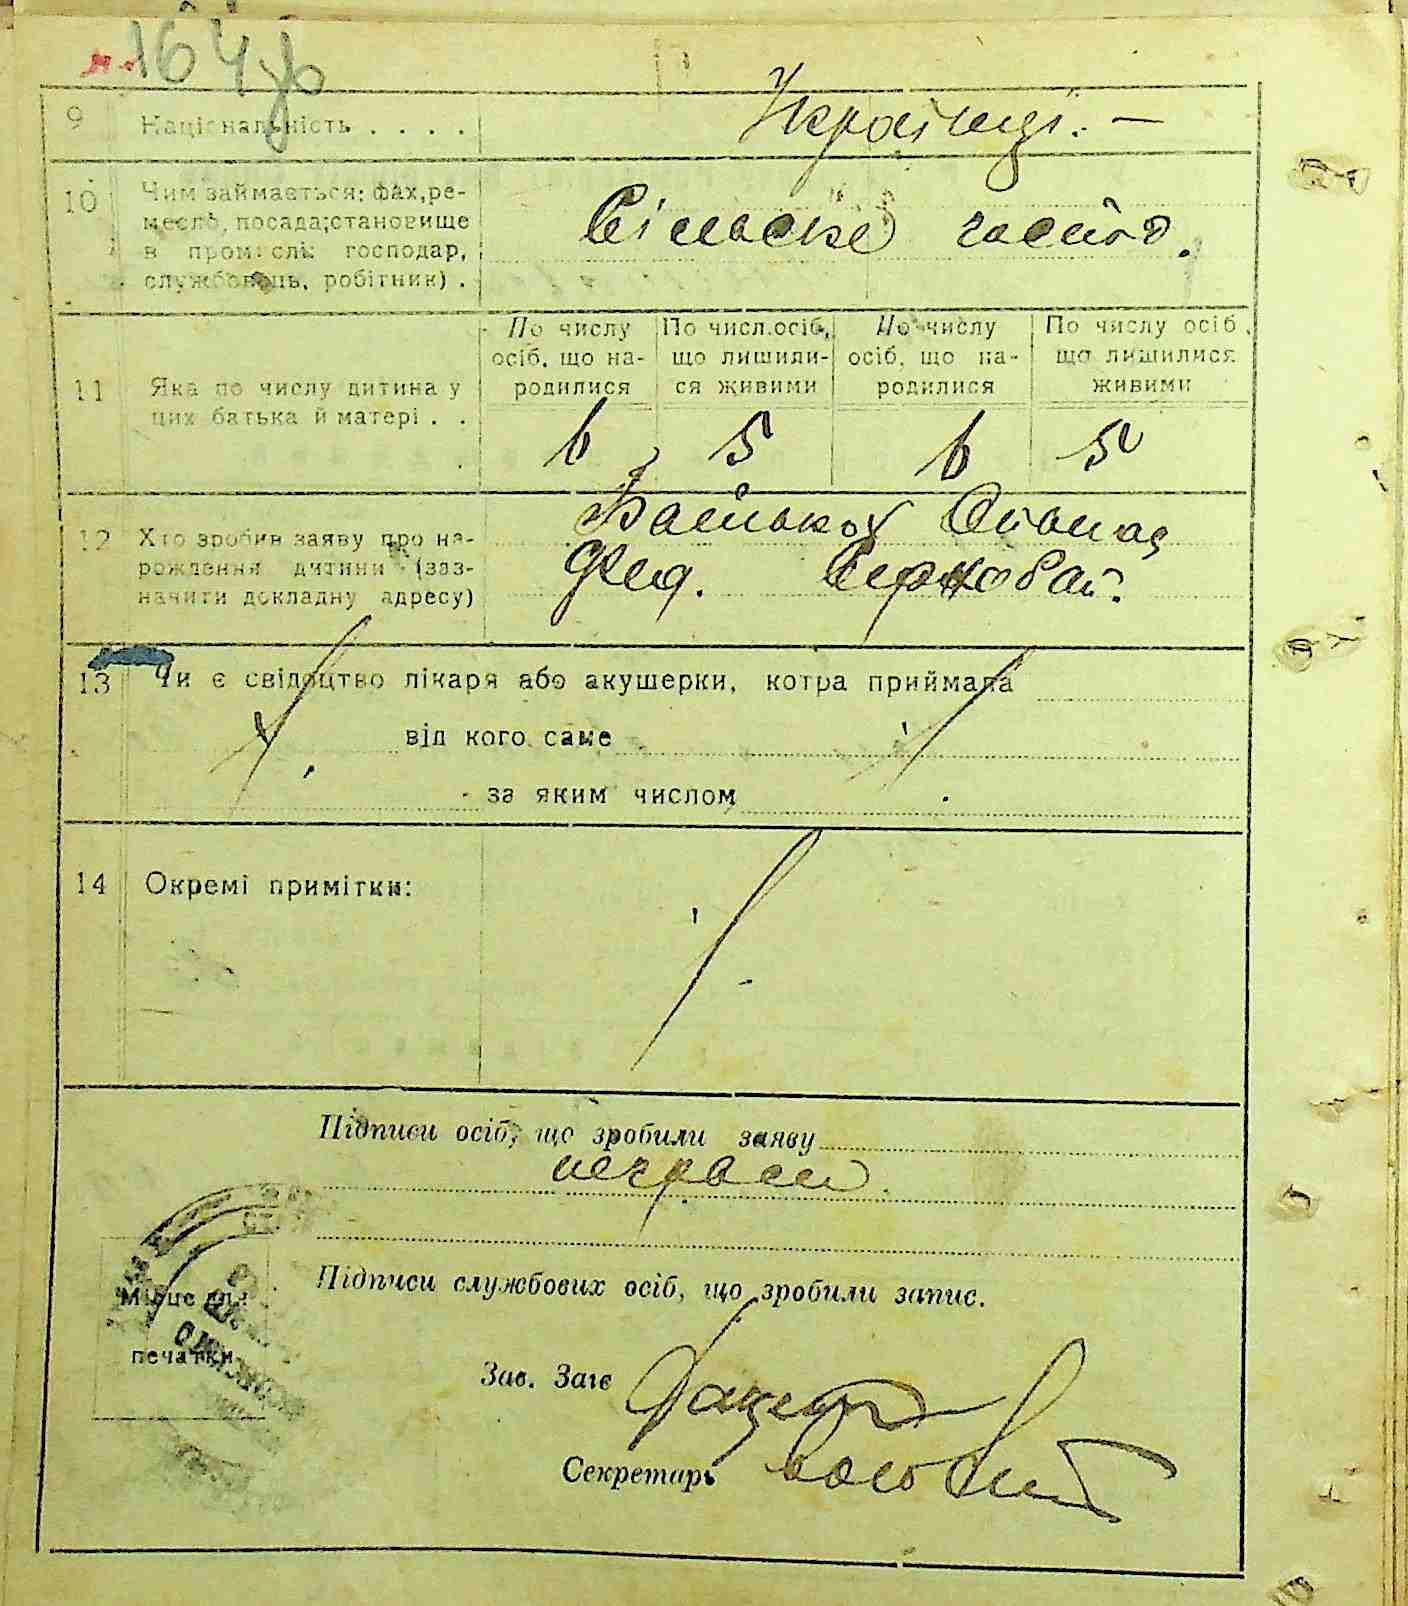 164 зв
9 Національність . . . . Українці. —
10 Чим займається: фах, ре-
месло, посада; становище
в промислі: господар,
службовець, робітник) .
Сільське госпд.
По числу осіб, що на-родилися
По числ. осіб, що лишили-ся живими
По числу осіб, що на-родилися
По числу осіб, що лишилися живими
11 Яка по числу дитина у
цих батька й матері . .
6 5 6 5
12 Хто зробив заяву про на-
рождення дитини (заз-
начити докладну адресу)
Батько
13 Чи є свідоцтво лікаря або акушерки, котра приймала
від кого саме
за яким числом
14 Окремі примітки:
Підписи осіб, що зробили заяву
неграм.
Підписи службових осіб, що зробили запис.
Місце для
печатки
Зав. Загс
Секретарь